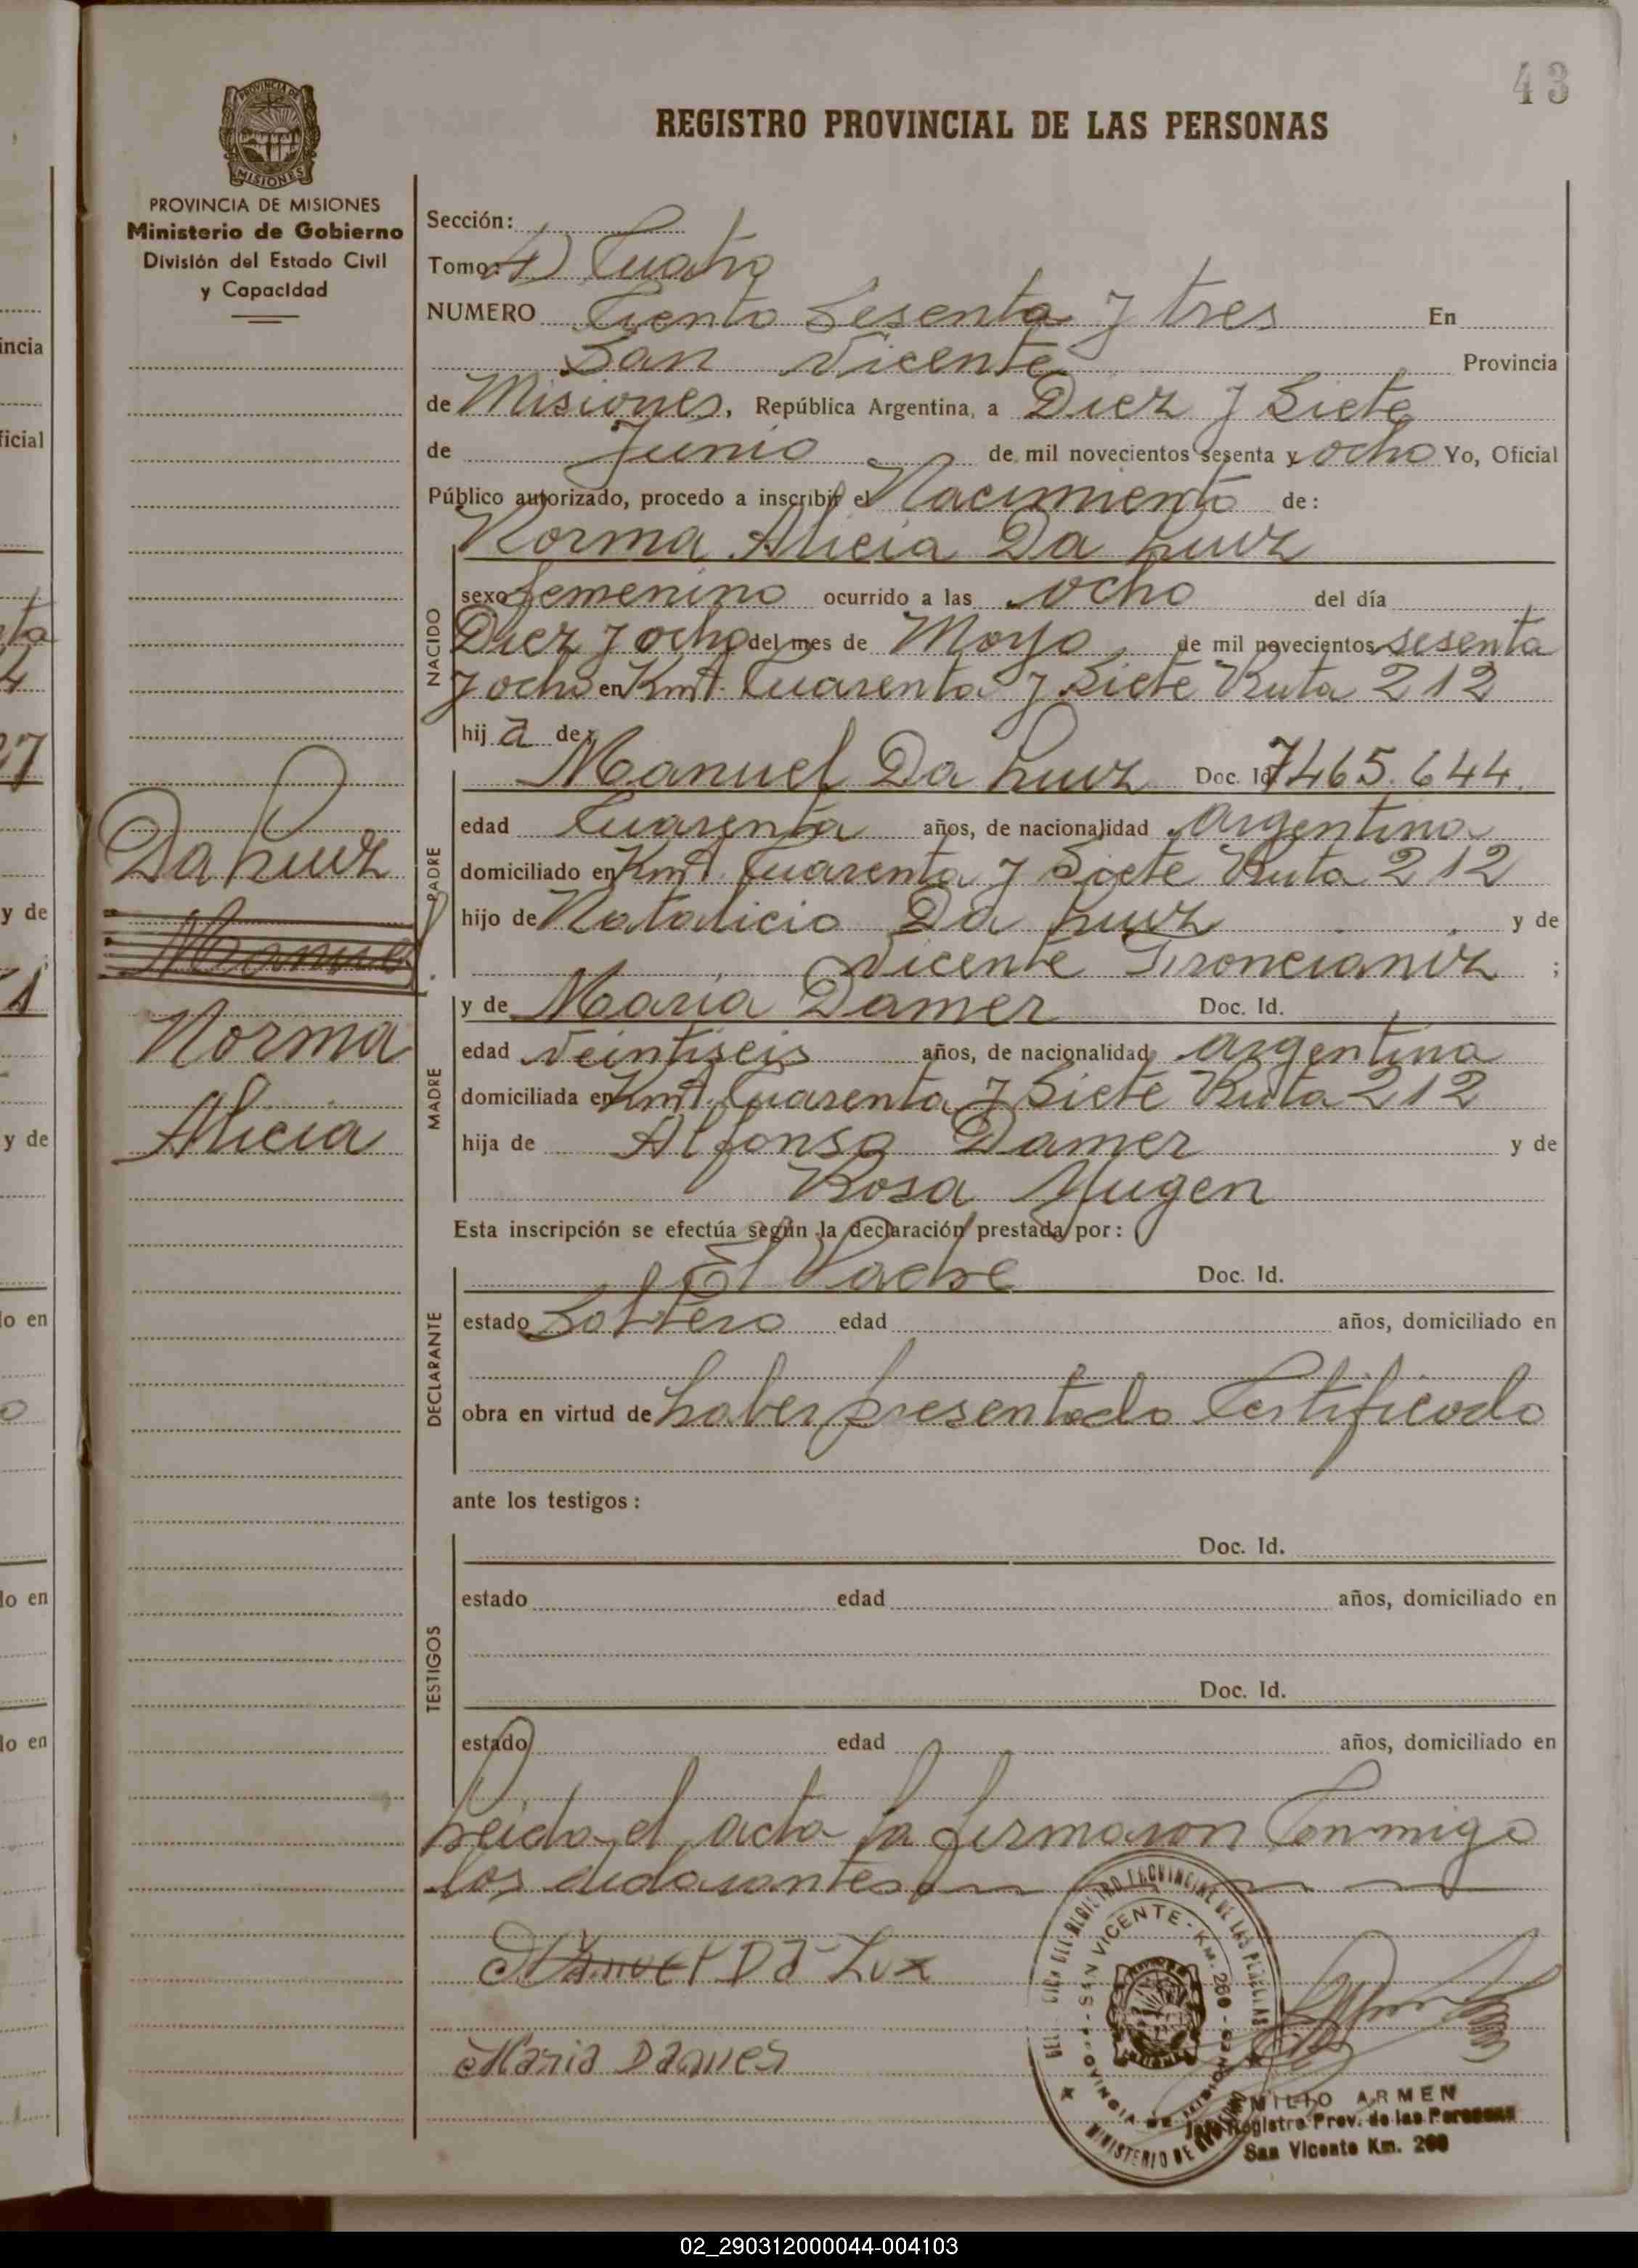 43
REGISTRO PROVINCIAL DE LAS PERSONAS
PROVINCIA DE MISIONES
Ministerio de Gobierno
División del Estado Civil
y Capacidad
Sección:
Tomo: 4) Cuatro
NUMERO Ciento Sesenta y tres En
San Vicente Provincia
de Misiones, República Argentina, a Diez y Siete
de Junio de mil novecientos sesenta y ocho Yo, Oficial
Público autorizado, procedo a inscribir el Nacimiento de:
Norma Alicia Da Luiz
NACIDO
sexo femenino ocurrido a las ocho del día
Diez y ocho del mes de Mayo de mil novecientos sesenta
y ocho en Kmt. Cuarenta y Siete Ruta 212
hij a de:
Manuel Da Luiz Doc. Id. 7465.644.
PADRE
edad Cuarenta años, de nacionalidad Argentino
domiciliado en Kmt. Cuarenta y Siete Ruta 212
hijo de Natalicio Da Luiz y de
Vicente ;
y de Maria Damer Doc. Id.
MADRE
edad Veintiseis años, de nacionalidad Argentina
domiciliada en Kmt. Cuarenta y Siete Ruta 212
hija de Alfonso Damer y de
Rosa Yugen
Da Luiz
Manuel
Norma
Alicia
Esta inscripción se efectúa según la declaración prestada por:
El Padre Doc. Id.
DECLARANTE
estado Soltero edad años, domiciliado en
obra en virtud de haber presentado Certificado
ante los testigos:
Doc. Id.
estado edad años, domiciliado en
TESTIGOS
Doc. Id.
estado edad años, domiciliado en
Leida el acta la firmaron Conmigo
los declarantes
Manuel Da Lux
Maria Damer
SAN VICENTE - KM. 260
PROVINCIA DE MISIONES
MINISTERIO DE GOBIERNO
MILIO ARMEN
Jefe Registro Prov. de las Personas
San Vicente Km. 260
02_290312000044-004103